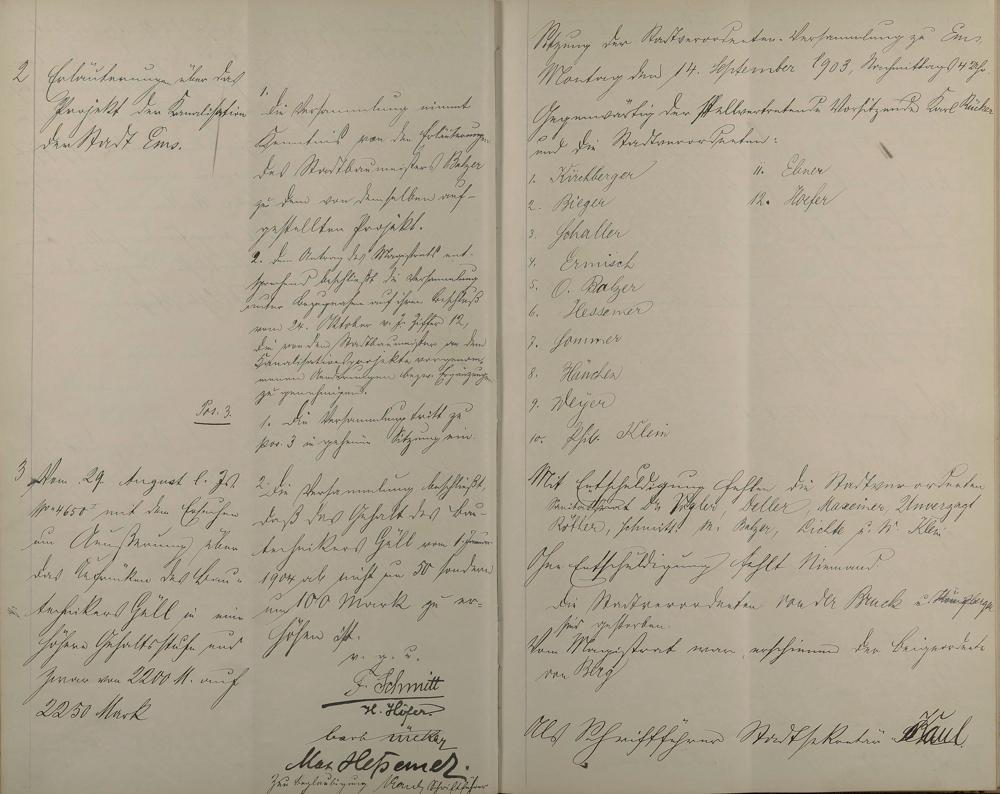 2 Erläuterung über das
Projekt der Kanalisation
der Stadt Ems.
1.
Die Versammlung nimmt
Kenntnis von den Erläuterungen
des Stadtbaumeisters Balzer
zu dem von demselben auf-
gestellten Projekt.
2. Dem Antrag des Magistrats ent-
sprechend beschließt die Versammlung
unter Bezugnahme auf ihren Beschluß
vom 24. Oktober v. Js. Ziffer 12,
die von dem Stadtbaumeister an dem
Kanalisationsprojekte vorgenom-
menen Aenderungen bezw. Ergänzungen
zu genehmigen.
Pos. 3.
1. Die Versammlung tritt zu
Pos. 3 in geheime Sitzung ein.
3 Vom 29. August l. Js.
No 4650 mit dem Ersuchen
um Aeußerung über
das Aufrücken des Bau-
technikers Güll in eine
höhere Gehaltsstufe und
zwar von 2200 M. auf
2250 Mark
2. Die Versammlung beschließt,
daß das Gehalt des Bau-
technikers Güll vom 1. Januar
1904 ab nicht um 50 sondern
um 100 Mark zu er-
höhen ist.
v. g. u.
F. Schmitt
H. Höfer.
Carl Rücker
Max Heßemer.
Zur Beglaubigung Schriftführer
Sitzung der Stadtverordneten-Versammlung zu Ems,
Montag den 14. September 1903, Nachmittags 4 Uhr.
Gegenwärtig der stellvertretende Vorsitzende Karl Rücker
und die Stadtverordneten:
1. Kirchberger
2. Bieger
3. Schaller
4. Ermisch
5. O. Balzer
6. Hessemer
7. Sommer
8. Hänchen
9. Weyer
10. Phil. Klein
11. Ebner
12. Hoefer
Mit Entschuldigung fehlen die Stadtverordneten
Sanitätsrat Dr. Vogler, Beller, Maxeiner, Unverzagt
Röttler, Schmitt, M. Balzer, Lichte u. W. Klein
Ohne Entschuldigung fehlt Niemand
Die Stadtverordneten von der Bruck u. Königsberger
sind gestorben.
Vom Magistrat war erschienen der Beigeordnete
von Berg
Als Schriftführer Stadtsekretär Kaul.